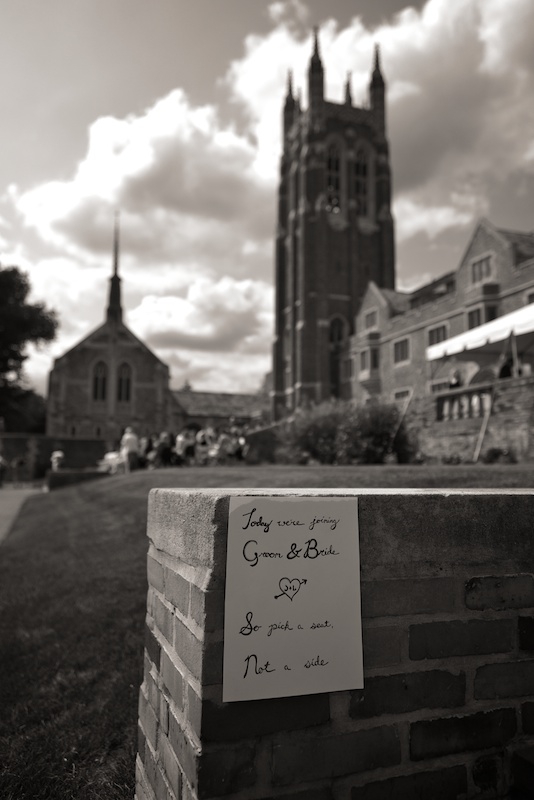 Today we're joining
Groom & Bride
J+L
So pick a seat,
Not a side